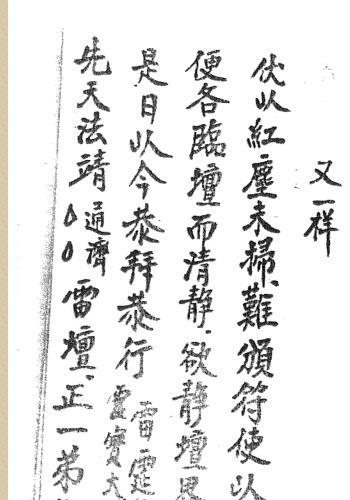 又一样
伏以紅塵未掃、難頒符使以
便各臨壇而清静、欲静壇
是日以今恭拜恭行
雷霆
靈寶大
先天法靖通濟
雷壇、正一弟